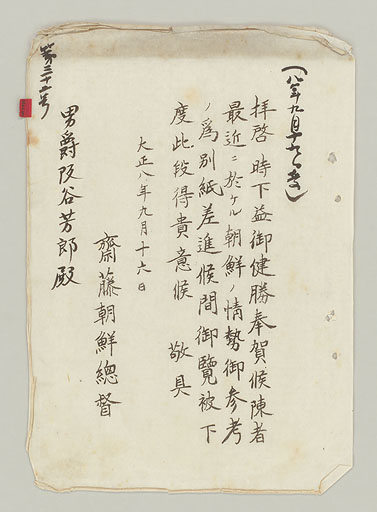 (八年九月十九日き)
拝啓時下益御健勝奉賀候陳者
最近ニ於ケル朝鮮ノ情勢御参考
ノ爲別紙差進候間御覽被下
度此段得貴意候 敬具
大正八年九月十六日
齋藤朝鮮總督
男爵阪谷芳郎殿